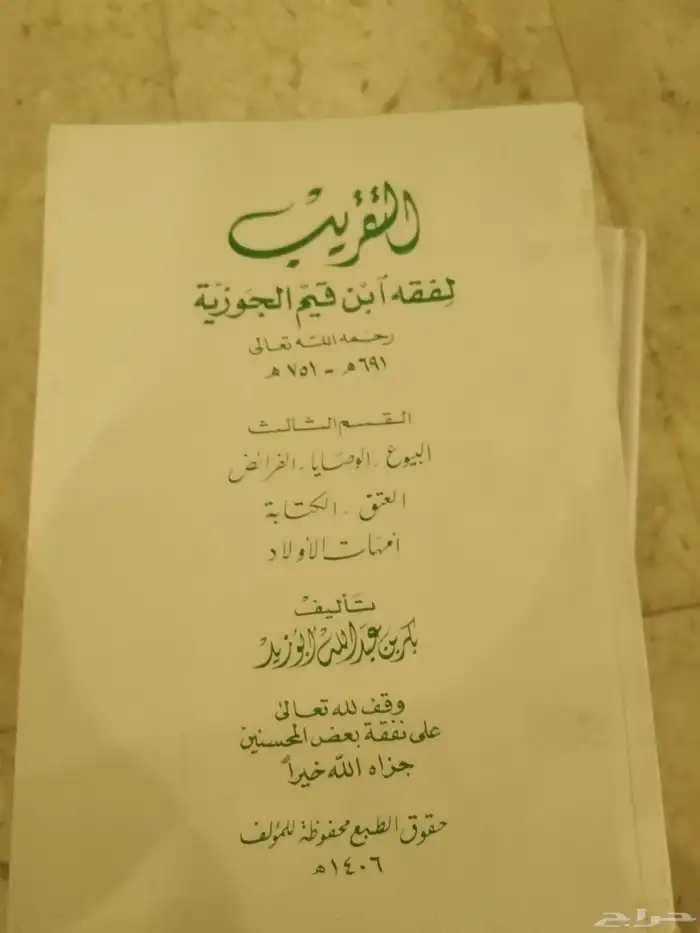 التقريب
لفقه ابن قيم الجوزية
رحمه الله تعالى
٦٩١ هـ - ٧٥١ هـ
القسم الثالث
البيوع - الوصايا - الفرائض
العتق - الكتابة
أمهات الأولاد
تأليف
بكر بن عبد الله أبو زيد
وقف لله تعالى
على نفقة بعض المحسنين
جزاه الله خيراً
حقوق الطبع محفوظة للمؤلف
١٤٠٦ هـ
حراج